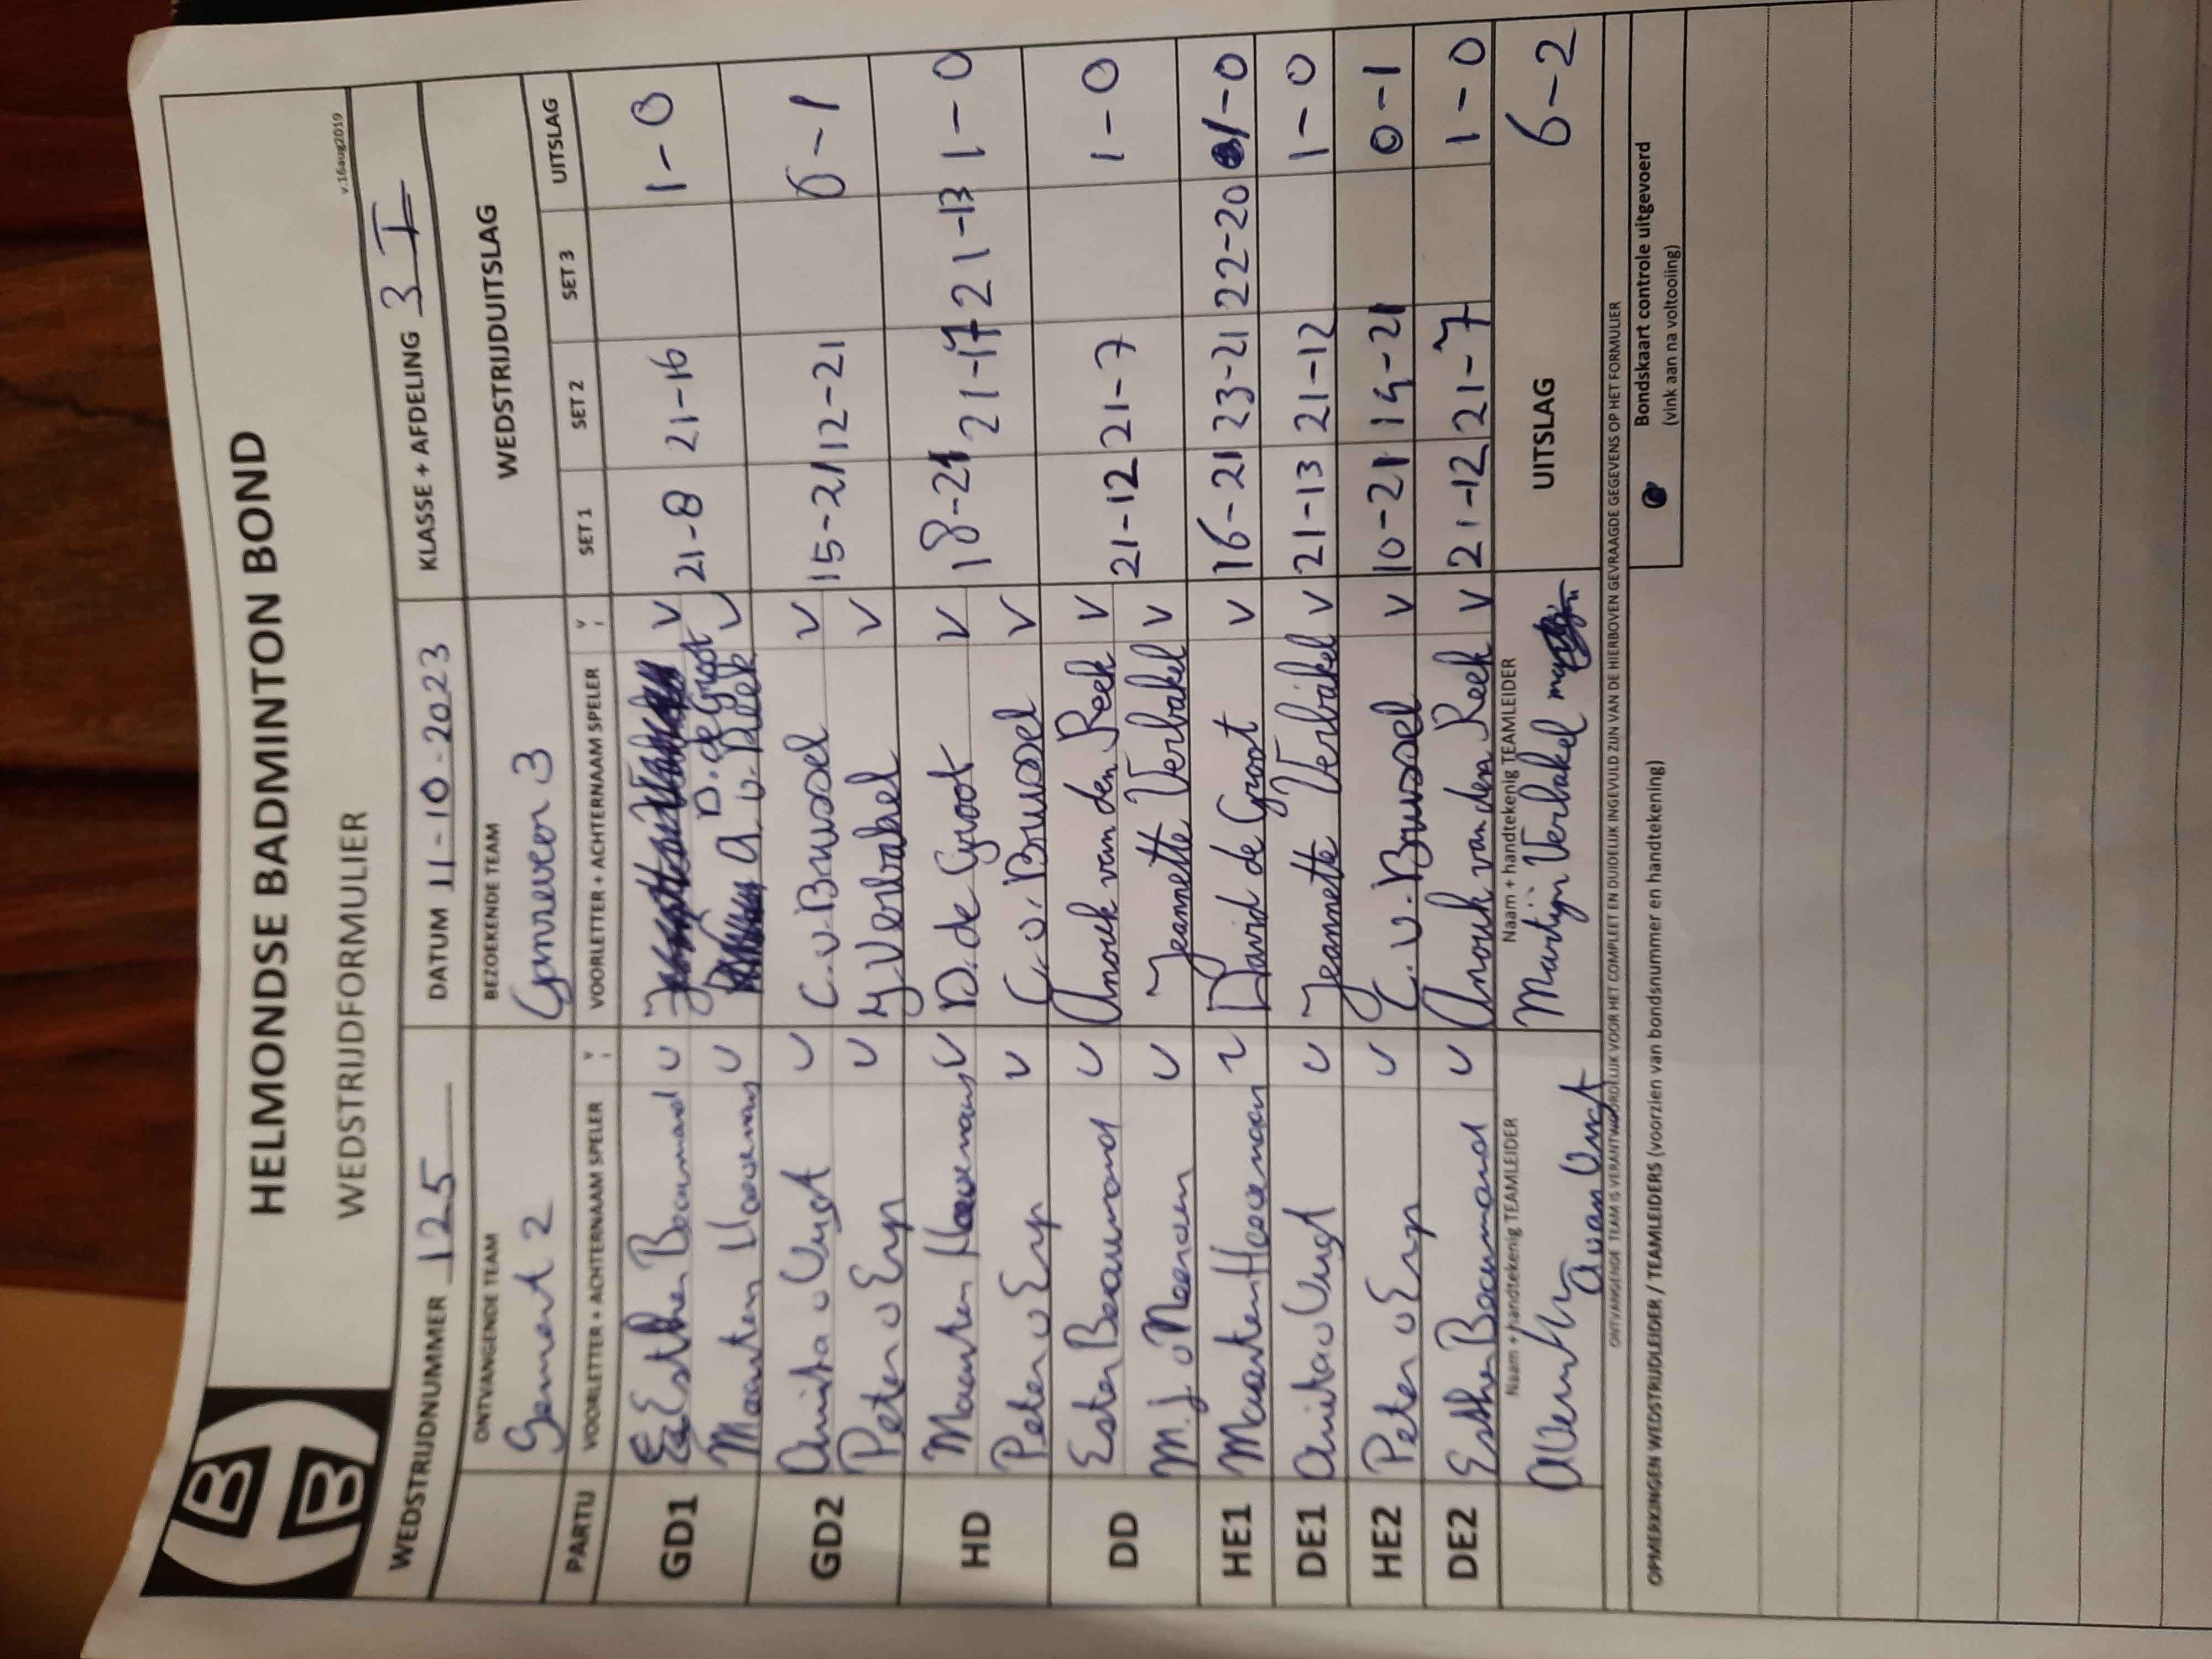 HELMONDSE BADMINTON BOND
WEDSTRIJDFORMULIER
v.16aug2019
WEDSTRIJDNUMMER 125 DATUM 11-10-2023 KLASSE + AFDELING 3 I
ONTVANGENDE TEAM BEZOEKENDE TEAM WEDSTRIJDUITSLAG
Gemert 2 3
PARTIJ VOORLETTER + ACHTERNAAM SPELER VOORLETTER + ACHTERNAAM SPELER SET 1 SET 2 SET 3 UITSLAG
GD1 Esther v D. de Groot v 21-8 21-16 1-0
Maarten v v
GD2 Anita v Vugt v C. v. Brussel v 15-21 12-21 0-1
Peter v Erp v J Verbakel v
HD Maarten v D. de Groot v 18-21 21-17 21-13 1-0
Peter v Erp v C. v. Brussel v
DD v Anouk van den Reek v 21-12 21-7 1-0
M.J. v v Jeannette Verbakel v
HE1 Maarten v David de Groot v 16-21 23-21 22-20 1-0
DE1 Anita v Vugt v Jeannette Verbakel v 21-13 21-12 1-0
HE2 Peter v Erp v C. v. Brussel v 10-21 19-21 0-1
DE2 Esther v Anouk van den Reek v 21-12 21-7 1-0
Naam + handtekenig TEAMLEIDER Naam + handtekenig TEAMLEIDER UITSLAG 6-2
Martijn Verbakel
ONTVANGENDE TEAM IS VERANTWOORDELIJK VOOR HET COMPLEET EN DUIDELIJK INGEVULD ZIJN VAN DE HIERBOVEN GEVRAAGDE GEGEVENS OP HET FORMULIER
OPMERKINGEN WEDSTRIJDLEIDER / TEAMLEIDERS (voorzien van bondsnummer en handtekening) Bondskaart controle uitgevoerd
(vink aan na voltooiing)